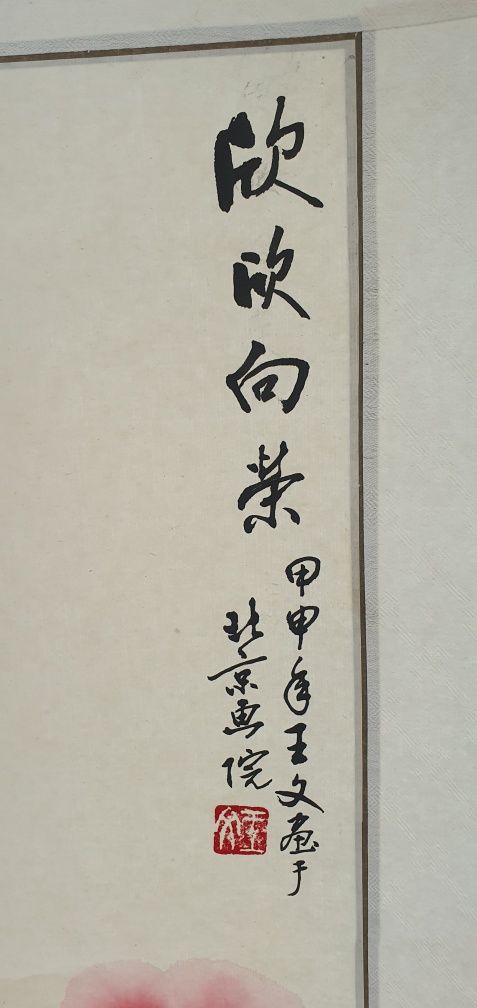 欣欣向荣
甲申年王文画于
北京画院
王文